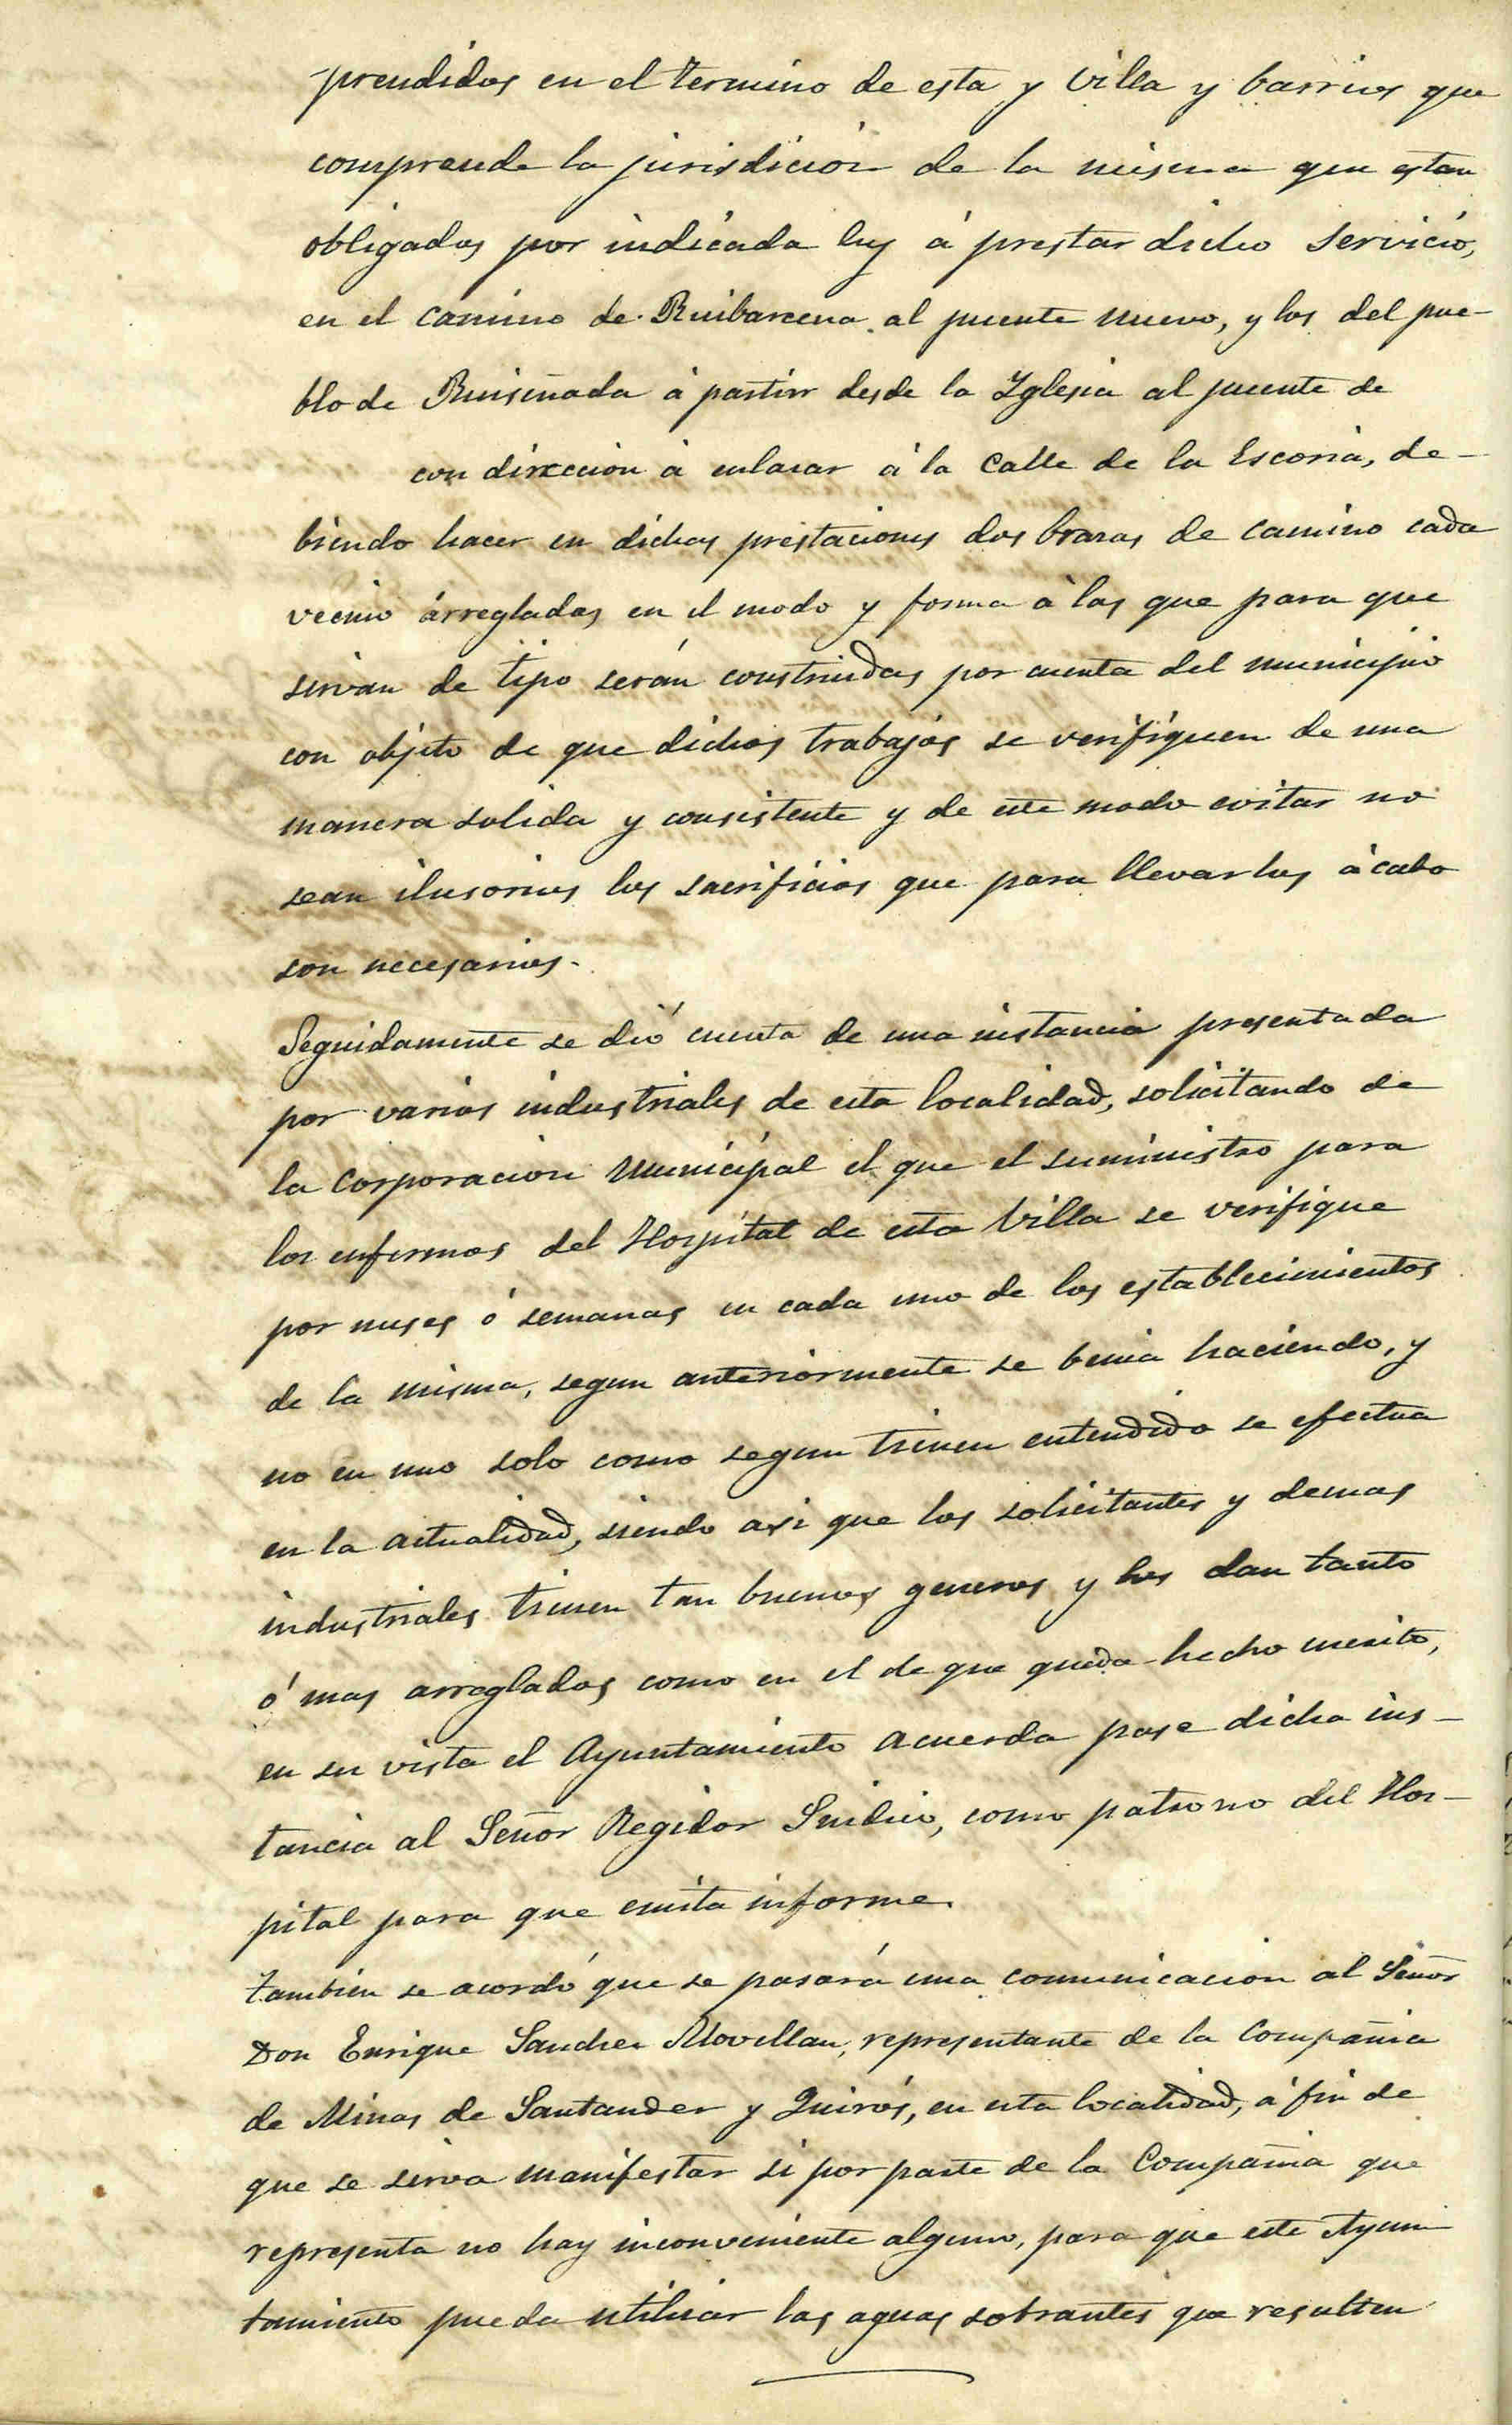 prendidos en el termino de esta y Villa y barrios que
comprende la jurisdición de la misma que estan
obligados por indicada ley á prestar dicho servicio,
en el camino de Ruibarcena al puente nuevo, y los del pue-
blo de Ruiseñada á partir desde la Yglesia al puente de
con dirección á enlazar á la Calle de la Escoria, de-
biendo hacer en dichas prestaciones dos brazas de camino cada
vecino árregladas en el modo y forma á las que para que
sirvan de tipo serán construidas por cuenta del municipio
con objeto de que dichos trabajos se verifiquen de una
manera solida y consistente y de este modo evitar no
sean ilusorios los sacrificios que para llevarlos á cabo
son necesarios.
Seguidamente se dió cuenta de una instancia presentada
por varios industriales de esta localidad, solicitando de
la Corporación Municipal el que el suministro para
los enfermos del Hospital de esta Villa se verifique
por meses ó semanas en cada uno de los establecimientos
de la misma, segun anteriormente se benia haciendo, y
no en uno solo como segun tienen entendido se efectua
en la actualidad, siendo asi que los solicitantes y demas
industriales tienen tan buenos generos y los dan tanto
ó mas arreglados como en el de que queda hecho merito,
en su vista el Ayuntamiento acuerda pase dicha ins-
tancia al Señor Regidor Sindico, como patrono del Hos-
pital para que emita informe.
Tambien se acordó que se pasará una comunicación al Señor
Don Enrique Sanchez Movellan, representante de la Compañia
de Minas de Santander y Quirós, en esta localidad, á fin de
que se sirva manifestar si por parte de la Compañia que
representa no hay inconveniente alguno, para que este Ayun
tamiento pueda utilizar las aguas sobrantes que resulten